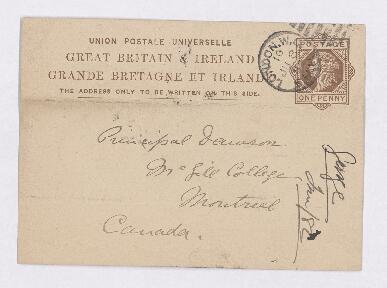 UNION POSTALE UNIVERSELLE
GREAT BRITAIN & IRELAND
GRANDE BRETAGNE ET IRLANDE
THE ADDRESS ONLY TO BE WRITTEN ON THIS SIDE.
LONDON.W.
POSTAGE
ONE PENNY
Principal Dawson
McGill College
Montreal
Canada.